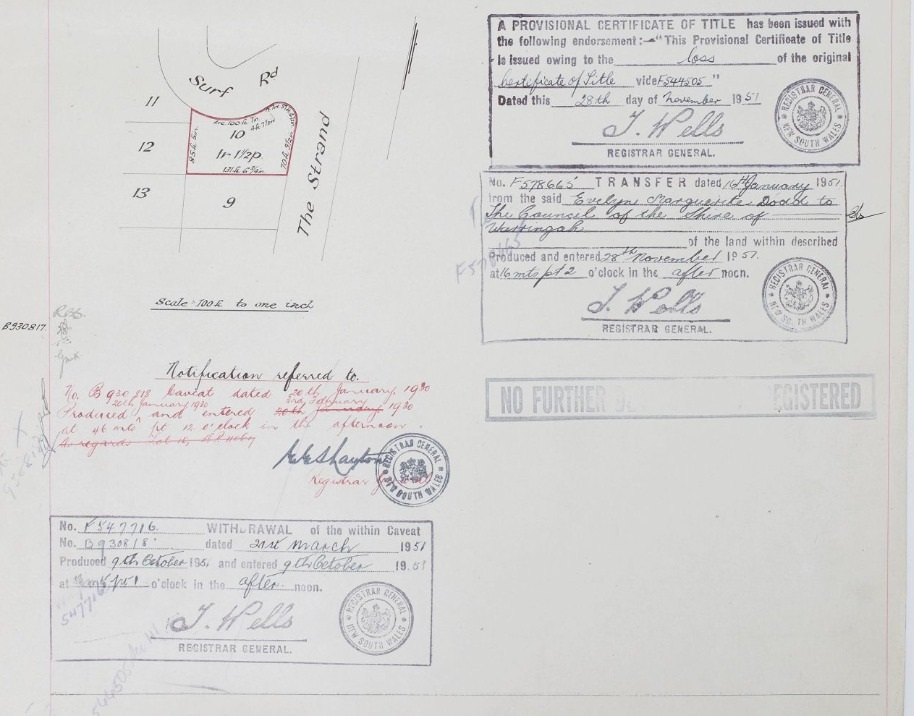 Surf Rd
11
12
13
10
1r-1½p.
9
The Strand
Scale 100ft to one inch
B930817.
Notification referred to.
No. B 930818 Caveat dated 20th January 1930
20th January 1930 3rd February
Produced and entered 20th January 1930
at 46 mts pt 12 o'clock in the afternoon.
As regards Lot 10,
Registrar General
REGISTRAR GENERAL
NEW SOUTH WALES
No. F547716. WITHDRAWAL of the within Caveat
No. B930818 dated 21st March 1951
Produced 9th October 1951 and entered 9th October 1951
at pt 1 o'clock in the after noon.
J. Wells
REGISTRAR GENERAL.
REGISTRAR GENERAL
NEW SOUTH WALES
547716
A PROVISIONAL CERTIFICATE OF TITLE has been issued with
the following endorsement:—"This Provisional Certificate of Title
is issued owing to the loss of the original
Certificate of Title vide F544505"
Dated this 28th day of November 1951
J. Wells
REGISTRAR GENERAL.
REGISTRAR GENERAL
NEW SOUTH WALES
No. F578665 TRANSFER dated 16th January 1951
from the said Evelyn Marguerite Dodd to
The Council of the Shire of
Warringah
of the land within described
Produced and entered 28th November 1951.
at 16 mts pt 2 o'clock in the after noon.
J. Wells
REGISTRAR GENERAL.
REGISTRAR GENERAL
NEW SOUTH WALES
F578665
NO FURTHER REGISTERED